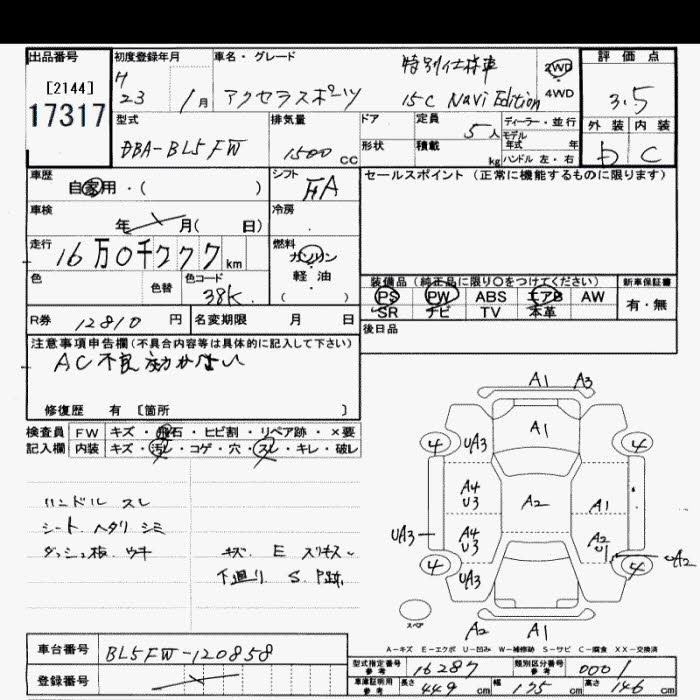 出品番号
[2144]
17317
初度登録年月
H
23 1月
車名・グレード
特別仕様車
アクセラスポーツ 15C Navi Edition
2WD
4WD
評価点
3.5
外装 内装
b C
型式
DBA-BL5FW
排気量
1500 CC
ドア
形状
定員
5人
積載
kg
ディーラー・並行
モデル
年式 年
ハンドル 左・右
車歴
自家用・( )
シフト
FA
セールスポイント(正常に機能するものに限ります)
車検
年 月( 日)
冷房
走行
16万0千777km
燃料
ガソリン
軽油
( )
色
色替
色コード
38K
装備品(純正品に限り○をつけてください)
新車保証書
PS PW ABS エアB AW
SR ナビ TV 本革
有・無
R券 12810 円
名変期限 月 日
後日品
注意事項申告欄(不具合内容等は具体的に記入して下さい)
AC不良 効かない
修復歴 有 [箇所 ]
検査員
記入欄
FW キズ・飛石・ヒビ割・リペア跡・×要
内装 キズ・汚レ・コゲ・穴・スレ・キレ・破レ
ハンドル スレ
シート ヘタリ シミ
ダッシュ板 ウキ
キズ E スリキズ
下廻り S P跡
A1 A3
A1
4 UA3 4
A4
U3
A2
A1
UA3
A4
U3
A2
U1
UA2
4 UA3 4
スペア
A2 A1
A-キズ E-エクボ U-凹み W-補修跡 S-サビ C-腐食 XX-交換済
車台番号
BL5FW-120858
登録番号
型式指定番号
参考
16287
類別区分番号
参考
0001
車庫証明用
参考
長さ 449 cm 幅 175 cm 高さ 146 cm